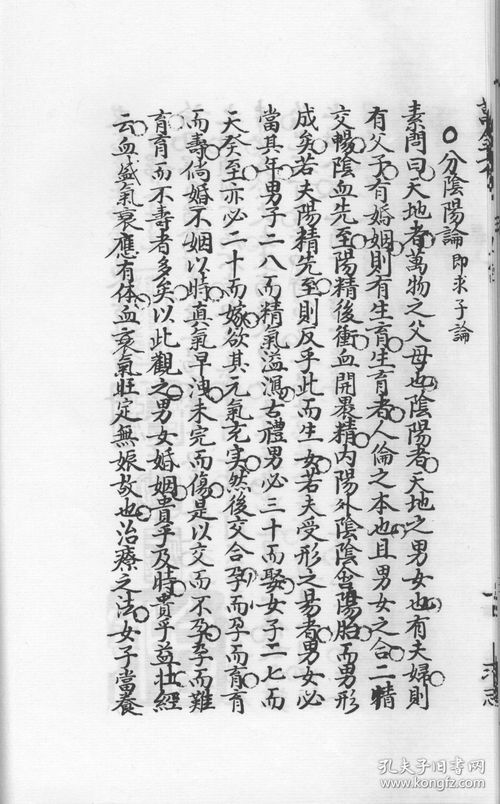 分陰陽論 即求子論
素問曰天地者萬物之父母也陰陽者天地之男女也有夫婦則
有父子有婚姻則有生育生育者人倫之本也且男女之合二精
交暢陰血先至陽精後衝血開裹精內陽外陰陰含陽胎而男形
成矣若夫陽精先至則反乎此而生女若夫受形之易者男女必
當其年男子二八而精氣溢瀉古禮男必三十而娶女子二七而
天癸至亦必二十而嫁欲其元氣充实然後交合孕而孕而育育
而壽倘婚不姻以時真氣早洩未完而傷是以交而不孕孕而難
育育而不壽者多矣以此觀之男女婚姻貴乎及時貴乎益壮經
云血盛氣衰應有体血衰氣旺定無娠故也治療之法女子當養
孔夫子旧书网
www.kongfz.com